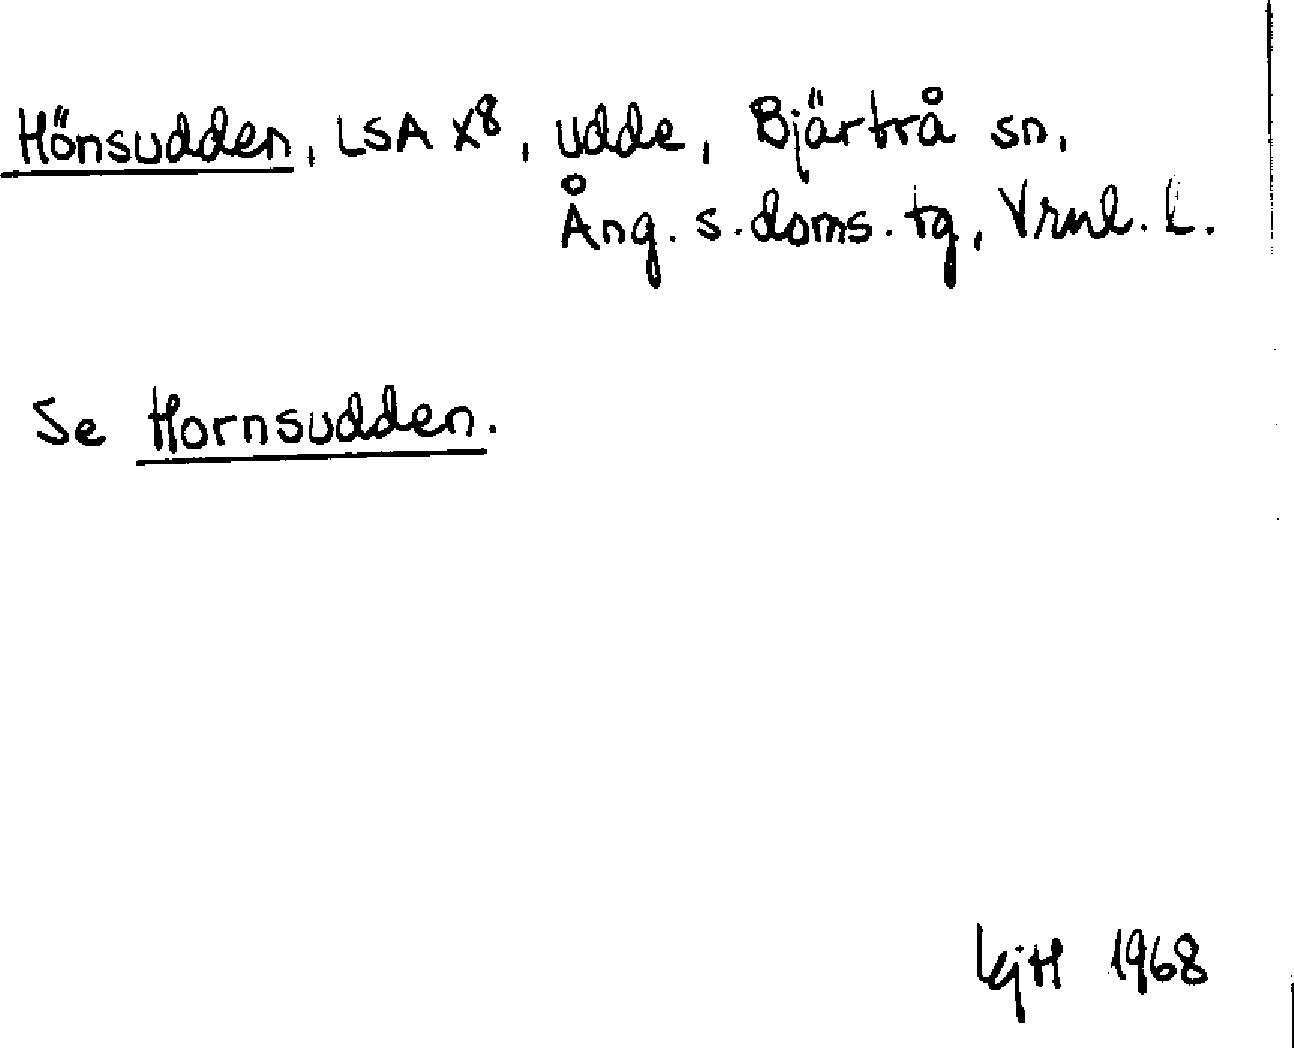 Hönsudden, LSA X8, udde, Bjärtrå sn,
Ång. s. doms. tg, Vrnl. L.
Se Hornsudden.
KjH 1968